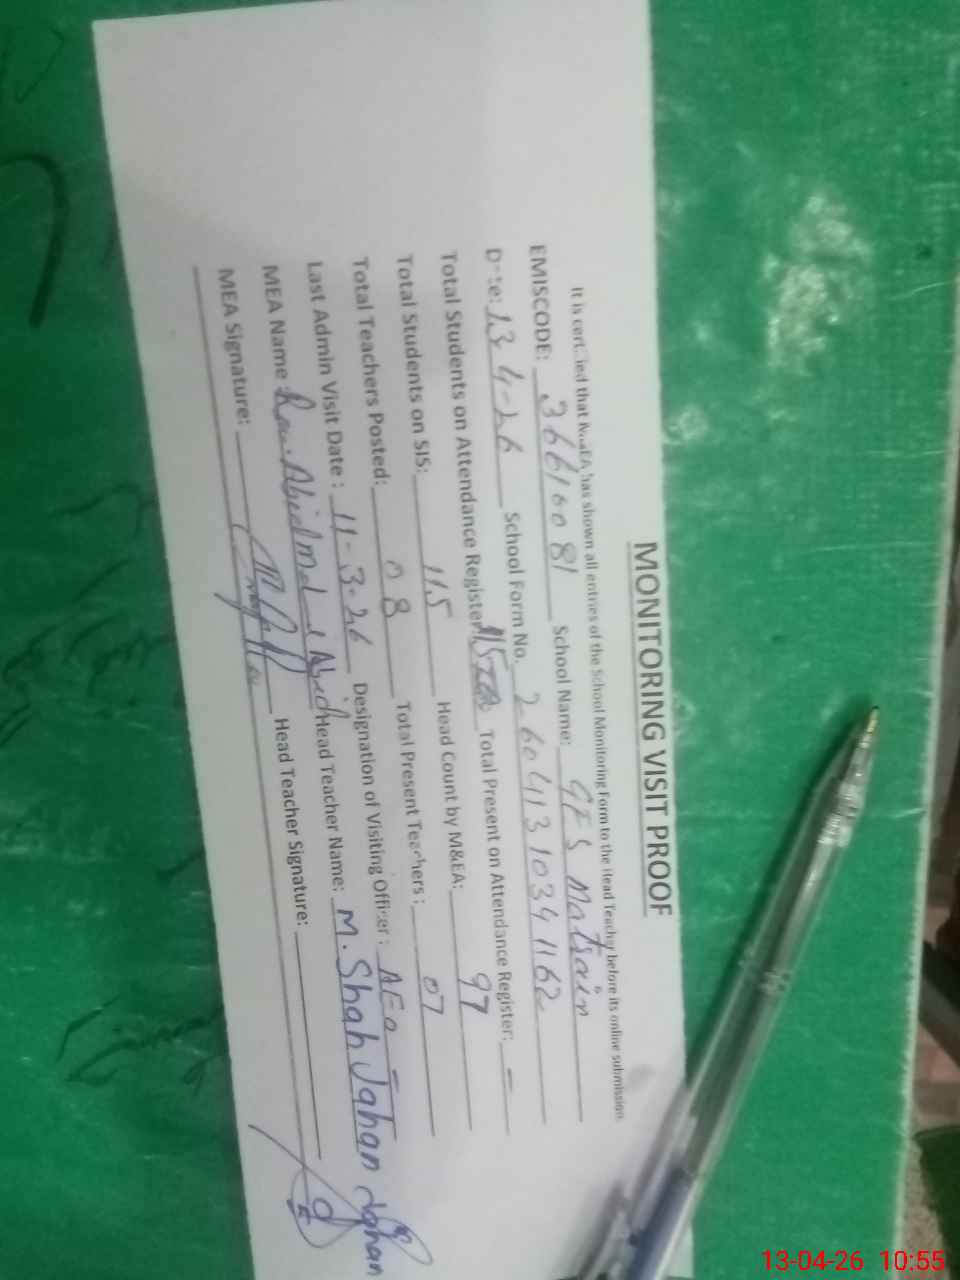 MONITORING VISIT PROOF
It is certified that M&EA has shown all entries of the School Monitoring Form to the Head Teacher before its online submission
EMISCODE: 36616081 School Name: GES Matrain
Date: 13-4-26 School Form No. 26041310341162
Total Students on Attendance Register: 115 Total Present on Attendance Register: —
Total Students on SIS: 115 Head Count by M&EA: 97
Total Teachers Posted: 08 Total Present Teachers: 07
Last Admin Visit Date: 11-3-26 Designation of Visiting Officer: AEO
MEA Name: Rao. Abid Head Teacher Name: M. Shah Jahan
MEA Signature: Head Teacher Signature:
13-04-26 10:55